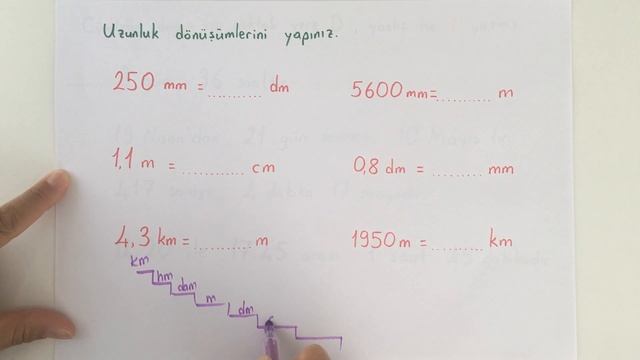 Uzunluk dönüşümlerini yapınız.
250 mm = .......... dm
5600 mm = .......... m
1,1 m = ............ cm
0,8 dm = .......... mm
4,3 km = .......... m
1950 m = .......... km
km
hm
dam
m
dm